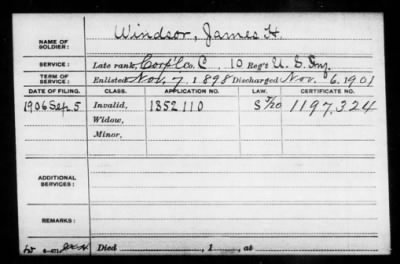 NAME OF SOLDIER: Windsor, James H.
SERVICE: Late rank, Corp'l Co. C, 10 Reg't U. S. Inf.
TERM OF SERVICE: Enlisted Nov. 7, 1898 Discharged Nov. 6, 1901
DATE OF FILING. CLASS. APPLICATION NO. LAW. CERTIFICATE NO.
1906 Sep. 5 Invalid, 1352110 1197,324
Widow,
Minor,
ADDITIONAL SERVICES:
REMARKS:
Died , 1 , at